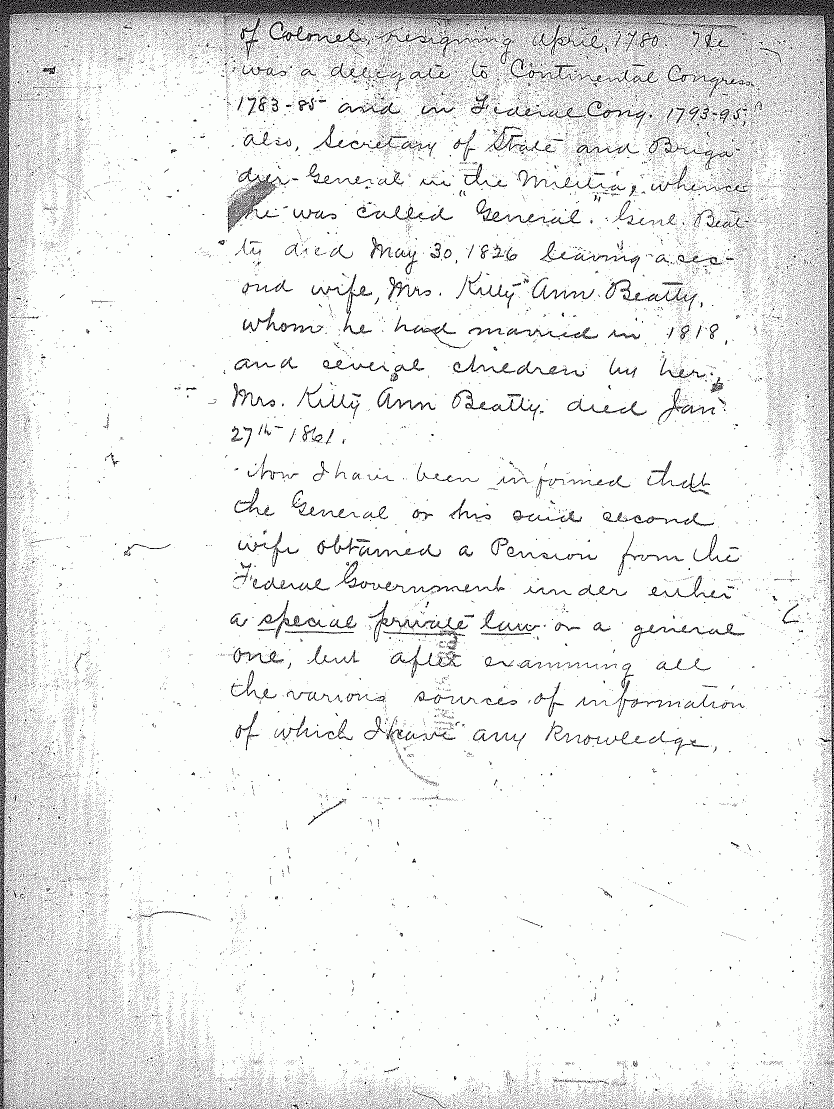 of Colonel, resigning April, 1780. He
was a delegate to Continental Congress
1783-85 and in Federal Cong. 1793-95,
also, Secretary of State and Briga-
dier-General in the Militia, whence
he was called "General." Genl. Beat-
ty died May 30, 1826 leaving a sec-
ond wife, Mrs. Kitty Ann Beatty,
whom he had married in 1818,
and several children by her.
Mrs. Kitty Ann Beatty died Jan
27th 1861.
Now I have been informed that
the General or his said second
wife obtained a Pension from the
Federal Government under either
a special private law or a general
one, but after examining all
the various sources of information
of which I have any knowledge,